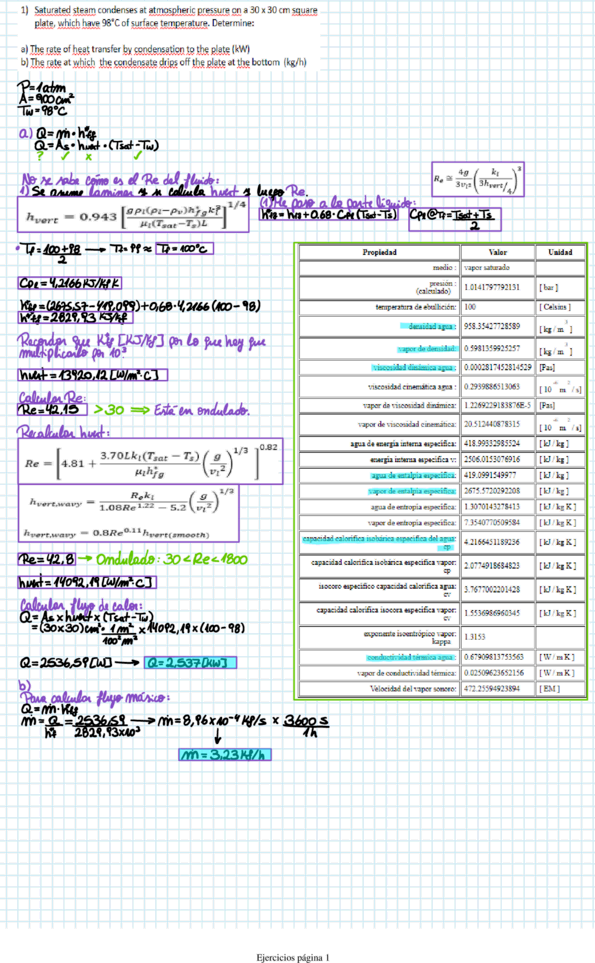 1) Saturated steam condenses at atmospheric pressure on a 30 x 30 cm square
plate, which have 98°C of surface temperature. Determine:
a) The rate of heat transfer by condensation to the plate (kW)
b) The rate at which the condensate drips off the plate at the bottom (kg/h)
P=1atm
A=900cm²
Tw=98°C
a) Q=ṁ·h*fg
Q=As·hvert·(Tsat-Tw)
? ✓ x ✓
No se sabe cómo es el Re del fluido:
1) Se asume laminar y se calcula hvert y luego Re.
Re ≅ 4g/3νl² (kl/3hvert/4)³
hvert = 0.943 [gρl(ρl−ρv)h*fg kl³/μl(Tsat−Ts)L]^1/4
(1) Me paso a la parte líquida:
h*fg = hfg+0.68·Cpl(Tsat-Ts)
Cpl@Tf=Tsat+Ts/2
• Tf=100+98/2 → Tf=99≈ Tf=100°C
Cpl=4,2166KJ/kgK
h*fg=(2675,57-419,099)+0,68·4,2166(100-98)
h*fg=2829,93 KJ/kg
Recordar que h*fg [KJ/kg] por lo que hay que
multiplicarlo por 10³
hvert=13920,12[W/m²·C]
Calcular Re:
Re=42,15 >30 ⟹ Está en ondulado.
Recalcular hvert:
Re = [4.81 + 3.70Lkl(Tsat − Ts)/μl h*fg (g/νl²)^1/3]^0.82
hvert,wavy = Re kl/1.08Re^1.22 − 5.2 (g/νl²)^1/3
hvert,wavy = 0.8Re^0.11 hvert(smooth)
Re=42,8 → Ondulado: 30<Re<1800
hvert=14092,19[W/m²·C]
Calcular flujo de calor:
Q=As x hvert x (Tsat-Tw)
=(30x30)cm²·1m²/100²m² x14092,19x(100-98)
Q=2536,59[W] → Q=2,537[kW]
b)
Para calcular flujo másico:
Q=ṁ·h*fg
ṁ=Q/h*fg=2536,59/2829,93x10³ → ṁ=8,96x10⁻⁴ kg/s x 3600s/1h
↓
ṁ=3,23 kg/h
Propiedad Valor Unidad
medio : vapor saturado
presión : (calculado) 1.0141797792131 [ bar ]
temperatura de ebullición: 100 [ Celsius ]
densidad agua : 958.35427728589 [ kg / m³ ]
vapor de densidad: 0.5981359925257 [ kg / m³ ]
viscosidad dinámica agua : 0.0002817452814529 [Pas]
viscosidad cinemática agua : 0.2939886513063 [ 10⁻⁶ m² / s]
vapor de viscosidad dinámica: 1.2269229183876E-5 [Pas]
vapor de viscosidad cinemática: 20.512440878315 [ 10⁻⁶ m² / s]
agua de energía interna específica: 418.99332985524 [ kJ / kg ]
energía interna específica v: 2506.0153076916 [ kJ / kg ]
agua de entalpía específica: 419.0991549977 [ kJ / kg ]
vapor de entalpía específica: 2675.5720292208 [ kJ / kg ]
agua de entropía específica: 1.3070143278413 [ kJ / kg K ]
vapor de entropía específica: 7.3540770509584 [ kJ / kg K ]
capacidad calorífica isobárica específica del agua: cp 4.2166451189236 [ kJ / kg K ]
capacidad calorífica isobárica específica vapor: cp 2.0774918684823 [ kJ / kg K ]
isocoro específico capacidad calorífica agua: cv 3.7677002201428 [ kJ / kg K ]
capacidad calorífica isocora específica vapor: cv 1.5536986960345 [ kJ / kg K ]
exponente isoentrópico vapor: kappa 1.3153
conductividad térmica agua : 0.67909813753563 [ W / m K ]
vapor de conductividad térmica: 0.02509623652156 [ W / m K ]
Velocidad del vapor sonoro: 472.25594923894 [ EM ]
Ejercicios página 1